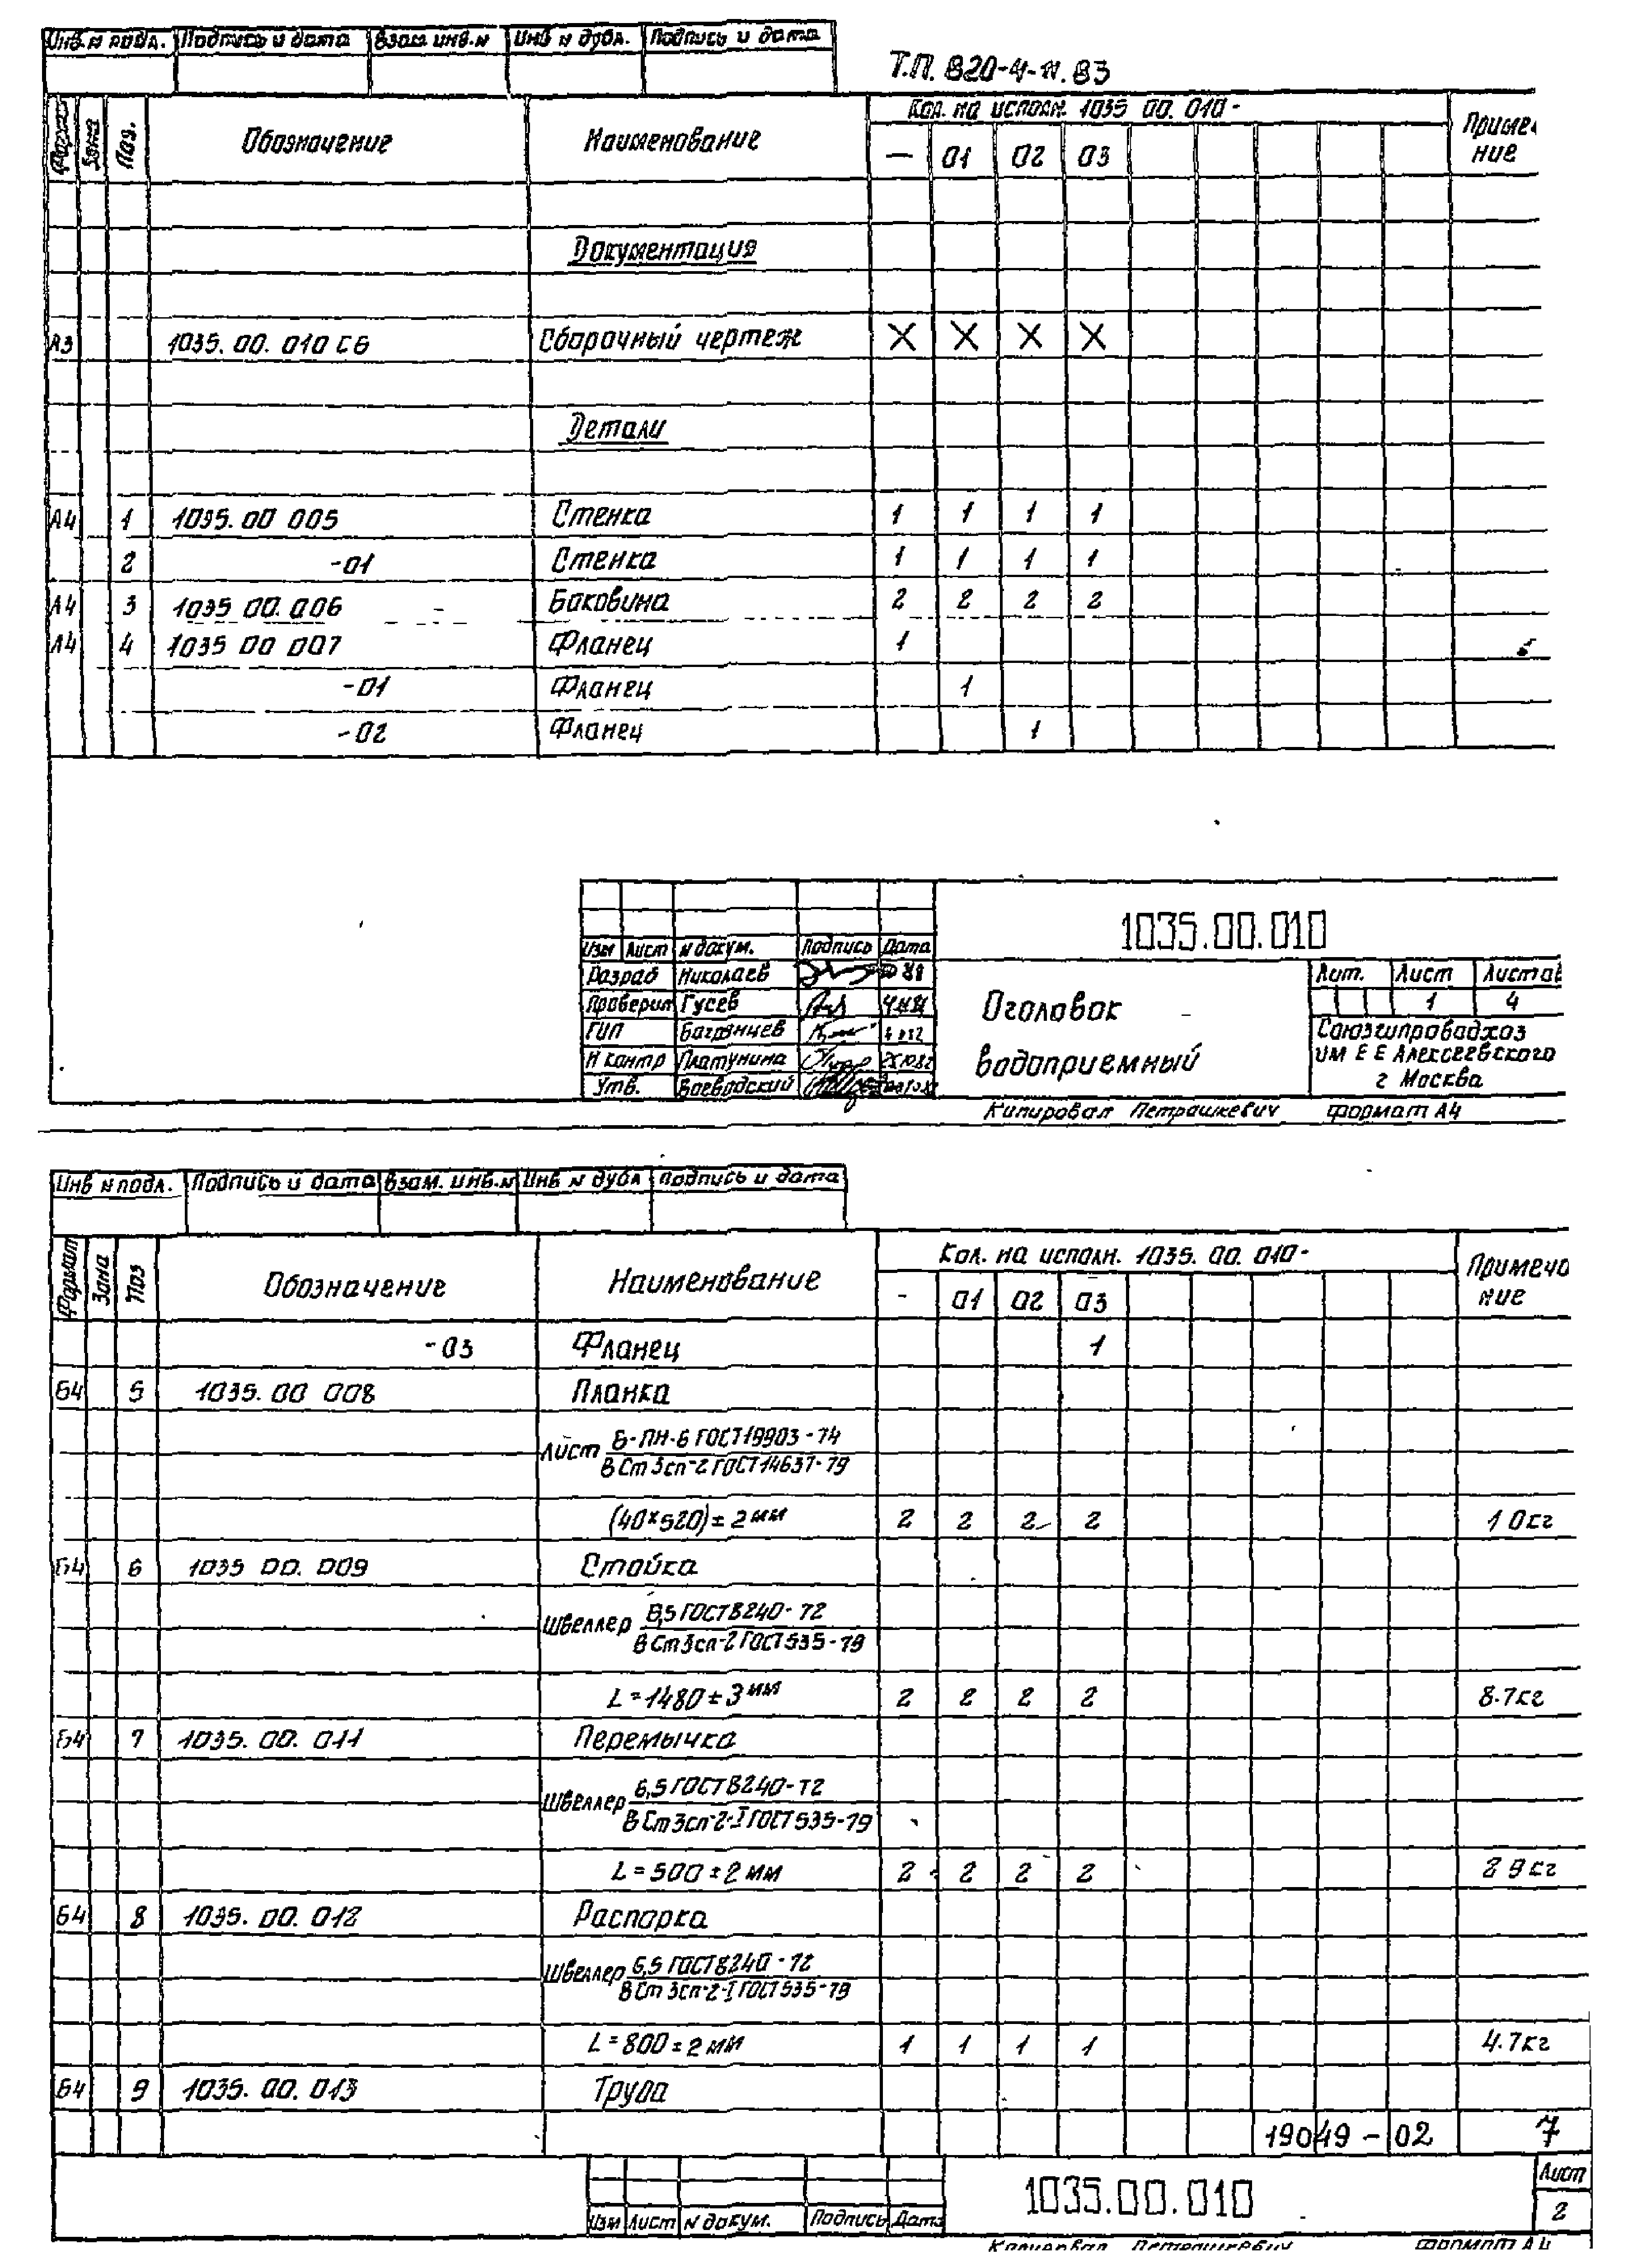 Инв. N подл. Подпись и дата Взам инв. N Инв N дубл. Подпись и дата
Т.П. 820-4-
Формат Зона Поз. Обозначение Наименование Кол. на исполн. 1035 00. 010- Приме
ние
— 01 02 03
Документация
А3 1035. 00. 010 СБ Сборочный чертеж X X X X
Детали
А4 1 1035. 00 005 Стенка 1 1 1 1
2 -01 Стенка 1 1 1 1
А4 3 1035 00. 006 Боковина 2 2 2 2
А4 4 1035 00 007 Фланец 1
-01 Фланец 1
-02 Фланец 1
1035.00.010
Изм Лист N докум. Подпись Дата
Разраб Николаев
Проверил Гусев
ГИП Багрянцев
Н контр Платунина
Утв. Воеводский
Оголовок
водоприемный
Лит. Лист Листов
1 4
Союзгипроводхоз
им Е Е Алексеевского
г Москва
Копировал Петрашкевич формат А4
Инв N подл. Подпись и дата Взам. инв. N Инв N дубл Подпись и дата
Формат Зона Поз Обозначение Наименование Кол. на исполн. 1035. 00. 010- Примеча
ние
- 01 02 03
-03 Фланец 1
Б4 5 1035. 00 008 Планка
Лист Б-ПН-6 ГОСТ 19903-74
В Ст 3сп-2 ГОСТ 14637-79
(40×520) ± 2 мм 2 2 2 2 1 0 кг
Б4 6 1035 00. 009 Стойка
Швеллер 6,5 ГОСТ 8240-72
В Ст 3сп-2 ГОСТ 535-79
L = 1480 ± 3 мм 2 2 2 2 8.7 кг
Б4 7 1035. 00. 011 Перемычка
Швеллер 6,5 ГОСТ 8240-72
В Ст 3сп-2-I ГОСТ 535-79
L = 500 ± 2 мм 2 2 2 2 2 9 кг
Б4 8 1035. 00. 012 Распорка
Швеллер 6,5 ГОСТ 8240-72
В Ст 3сп-2-I ГОСТ 535-79
L = 800 ± 2 мм 1 1 1 1 4.7 кг
Б4 9 1035. 00. 013 Труба
19049-02 7
1035.00.010
Лист
2
Изм Лист N докум. Подпись Дата
Копировал Петрашкевич формат А4